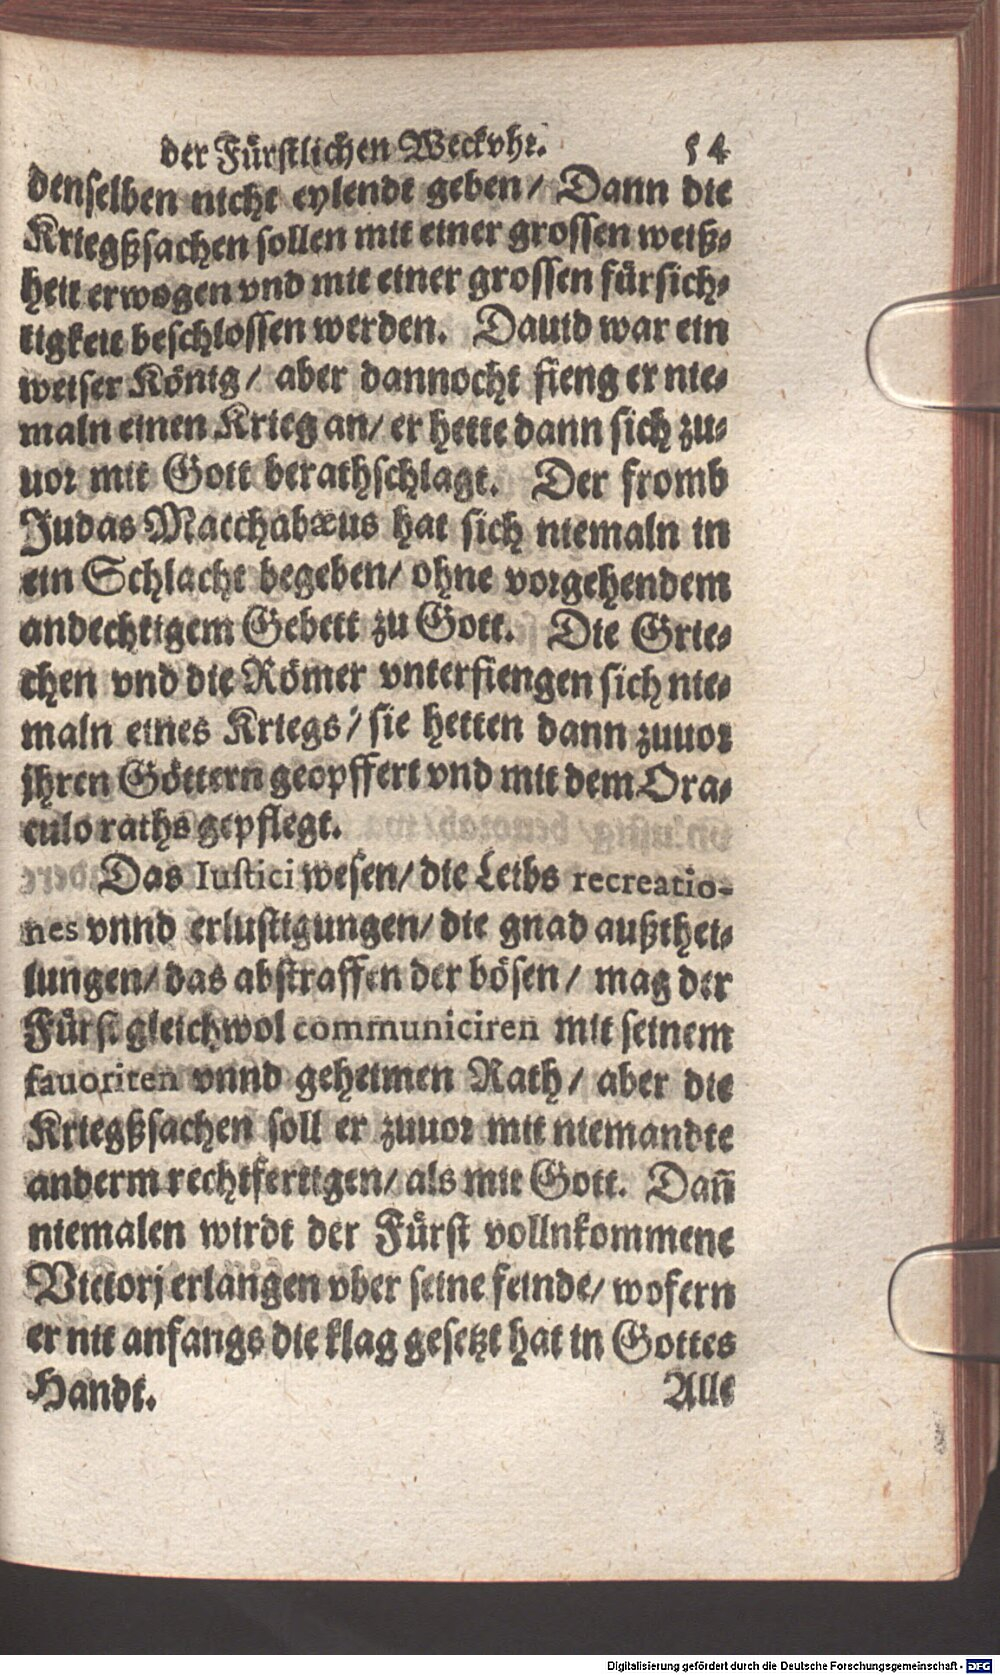 der Fürstlichen Weckvhr. 54
denselben nicht eylendt geben/ Dann die
Kriegßsachen sollen mit einer grossen weiß-
heit erwogen vnd mit einer grossen fürsich-
tigkeit beschlossen werden. Dauid war ein
weiser König/ aber dannocht fieng er nie-
maln einen Krieg an/ er hette dann sich zu-
uor mit Gott berathschlagt. Der fromb
Judas Macchabæus hat sich niemaln in
ein Schlacht begeben/ ohne vorgehendem
andechtigem Gebett zu Gott. Die Grie-
chen vnd die Römer vnterfiengen sich nie-
maln eines Kriegs/ sie hetten dann zuuor
jhren Göttern geopffert vnd mit dem Ora-
culo raths gepflegt.
Das Iustici wesen/ die Leibs recreatio-
nes vnnd erlustigungen/ die gnad außthei-
lungen/ das abstraffen der bösen/ mag der
Fürst gleichwol communiciren mit seinem
fauoriten vnnd geheimen Rath/ aber die
Kriegßsachen soll er zuuor mit niemandte
anderm rechtfertigen/ als mit Gott. Dañ
niemalen wirdt der Fürst vollnkommene
Victorj erlangen vber seine feinde/ wofern
er nit anfangs die klag gesetzt hat in Gottes
Handt. Alle
Digitalisierung gefördert durch die Deutsche Forschungsgemeinschaft - DFG